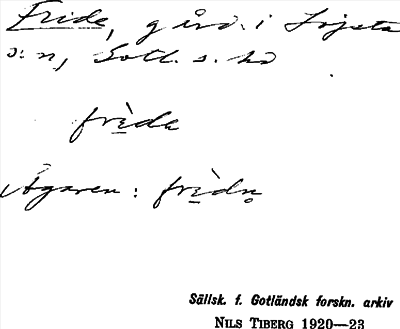 Fride, gård i Lojsta
s:n, Gotl. s. hd
frìda
Ägaren : frìdn̥
Sällsk. f. Gotländsk forskn. arkiv
NILS TIBERG 1920—23